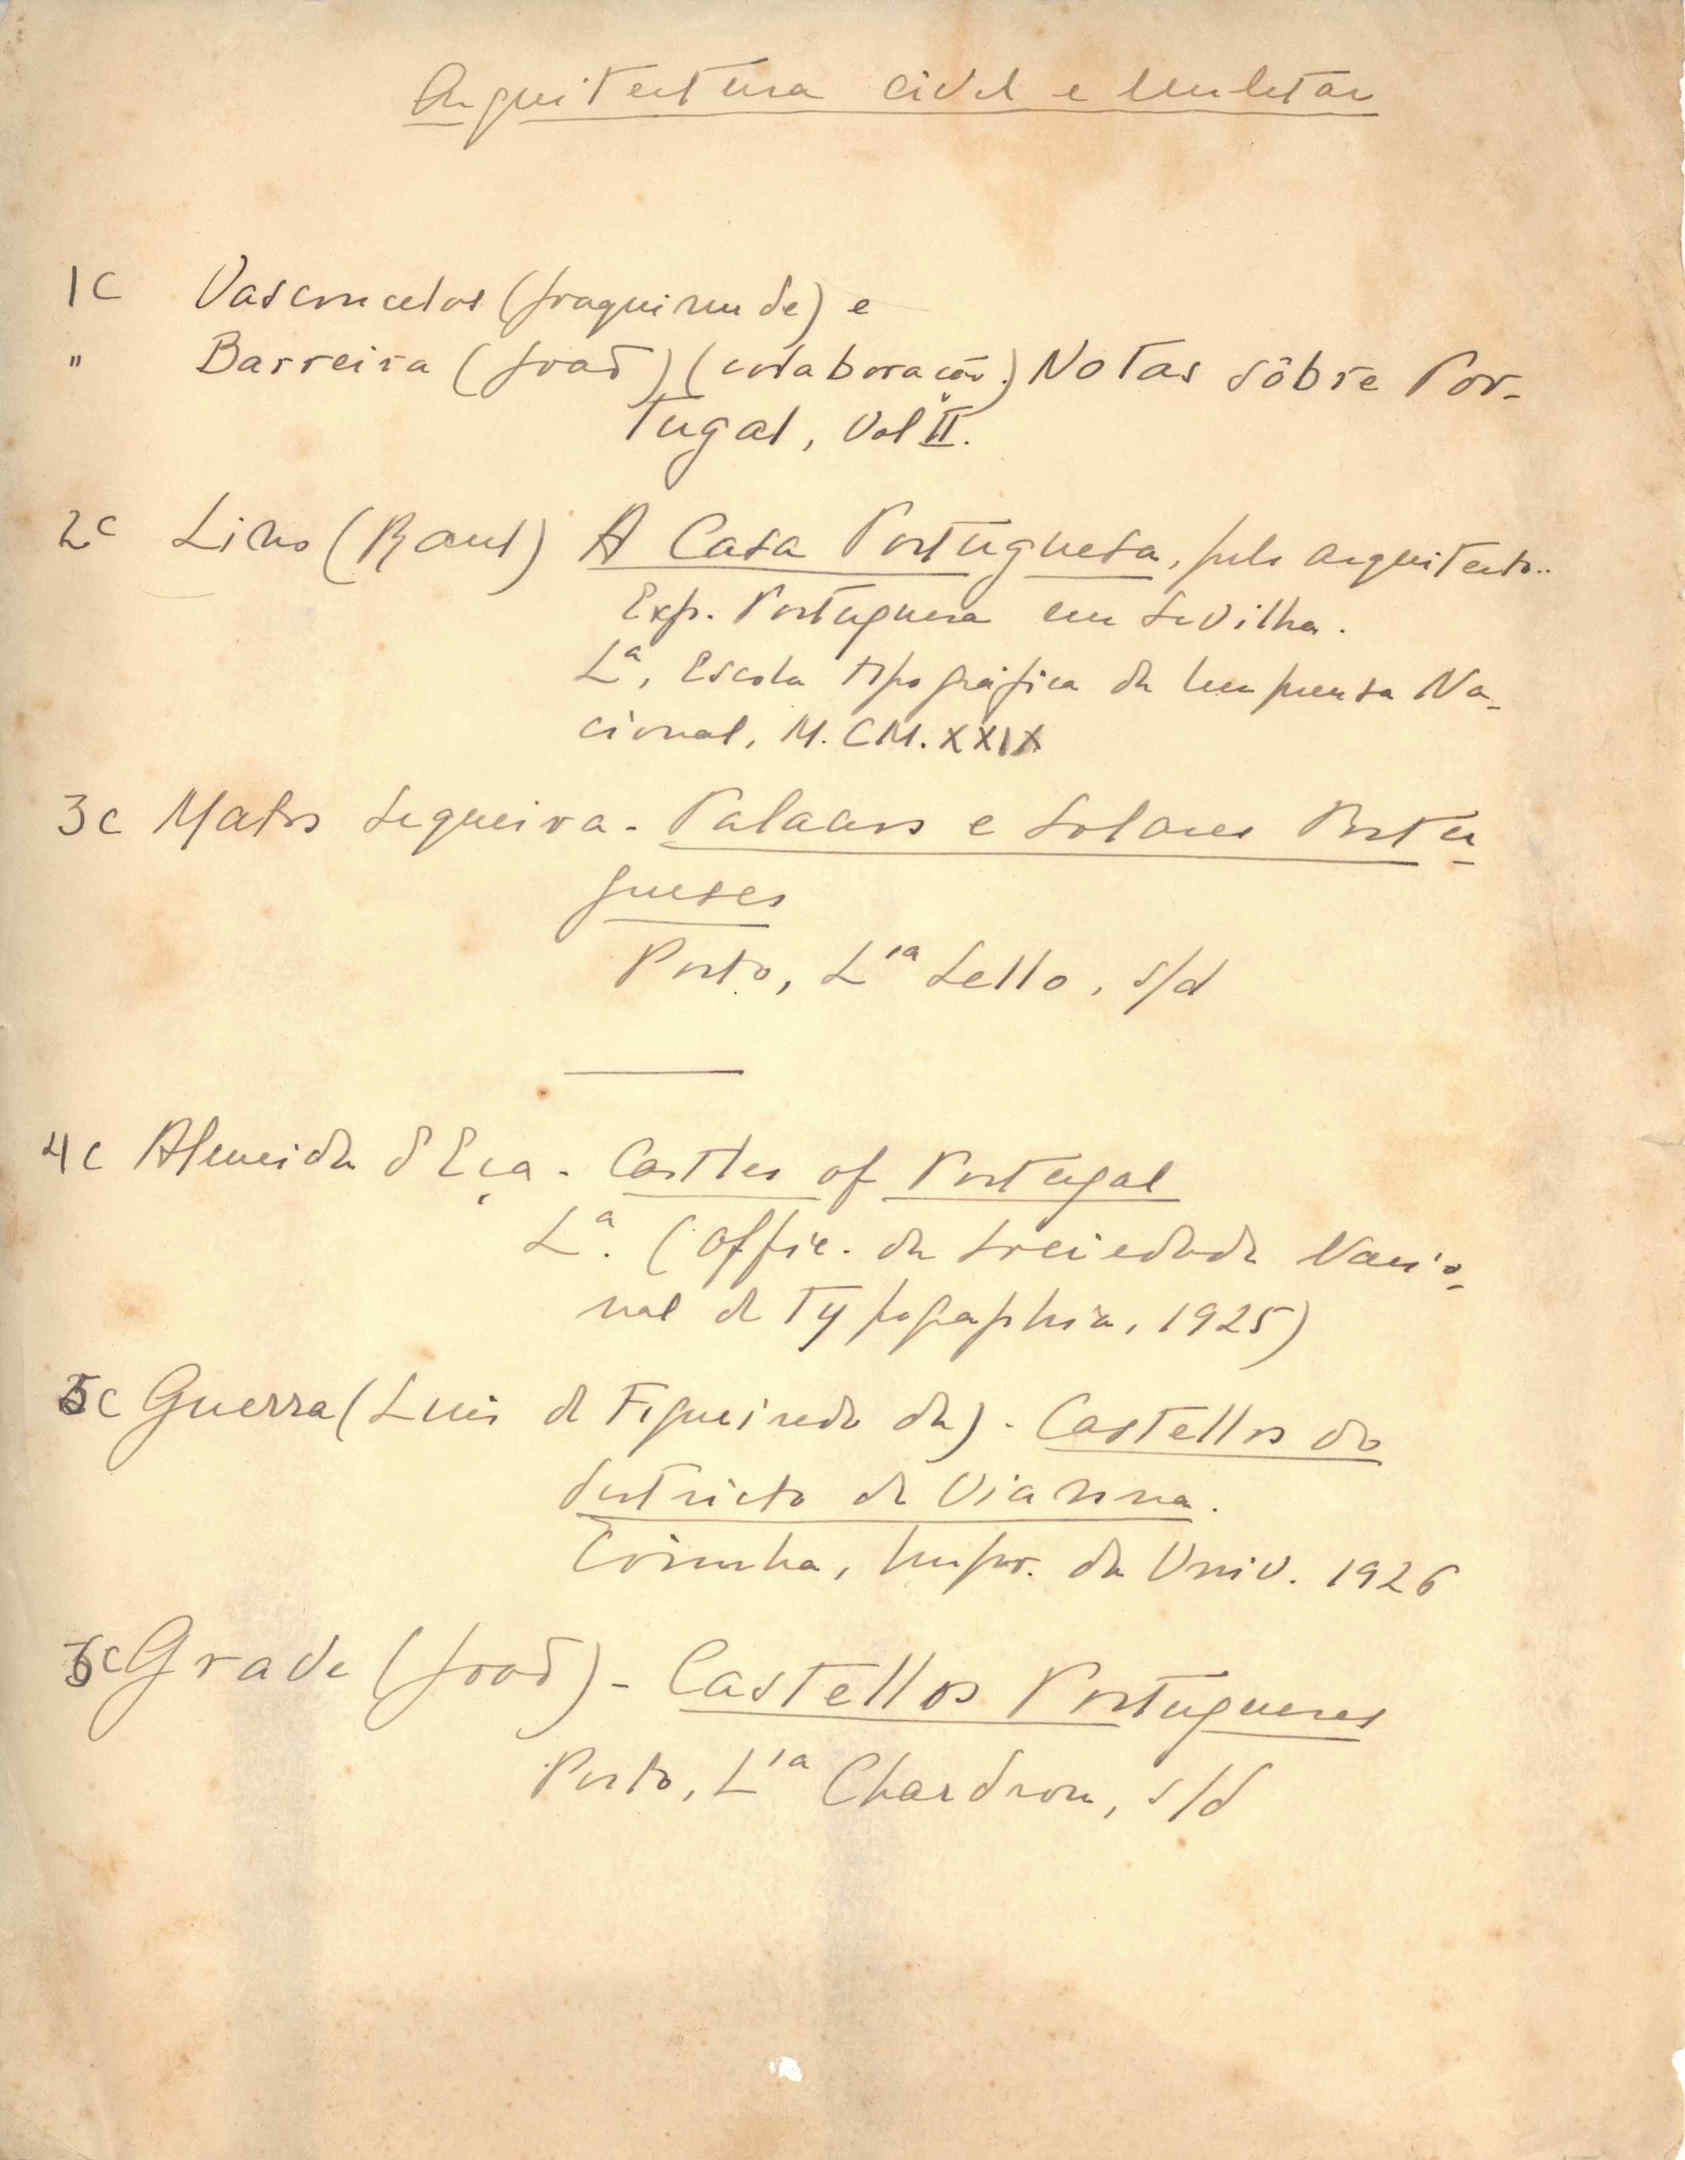 Arquitectura civil e militar
1C Vasconcelos (Joaquim de) e
" Barreira (João) (colaboração) Notas sôbre Por-
tugal, Vol II.
2C Lino (Raul) A Casa Portuguesa, pelo arquitecto..
Exp. Portuguesa em Sevilha.
Lª, Escola tipográfica da Imprensa Na-
cional, M.CM.XXIX
3C Matos Sequeira - Palacios e Solares Portu-
gueses
Porto, Lia Lello, s/d
4C Almeida d'Eça - Castles of Portugal
Lª. (Offic. da Sociedade Nacio-
nal de Typographia, 1925)
5C Guerra (Luis de Figueiredo da) - Castellos do
districto de Vianna.
Coimbra, Impr. da Univ. 1926
6C Grave (João) - Castellos Portugueses
Porto, Lia Chardron, s/d